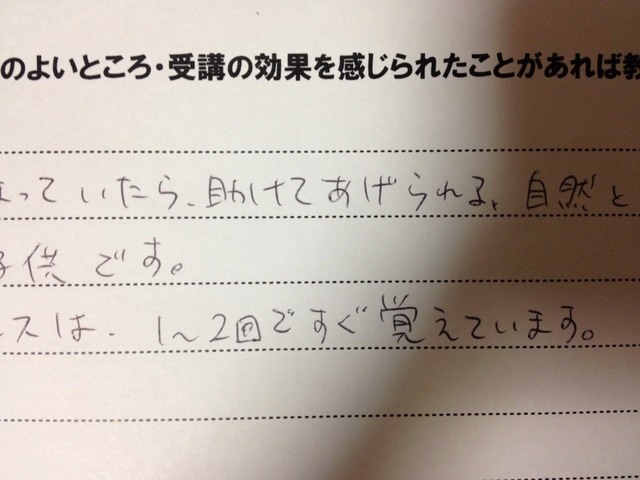 のよいところ・受講の効果を感じられたことがあれば教
まっていたら、助けてあげられる、自然と
子供です。
スは、1〜2回ですぐ覚えています。